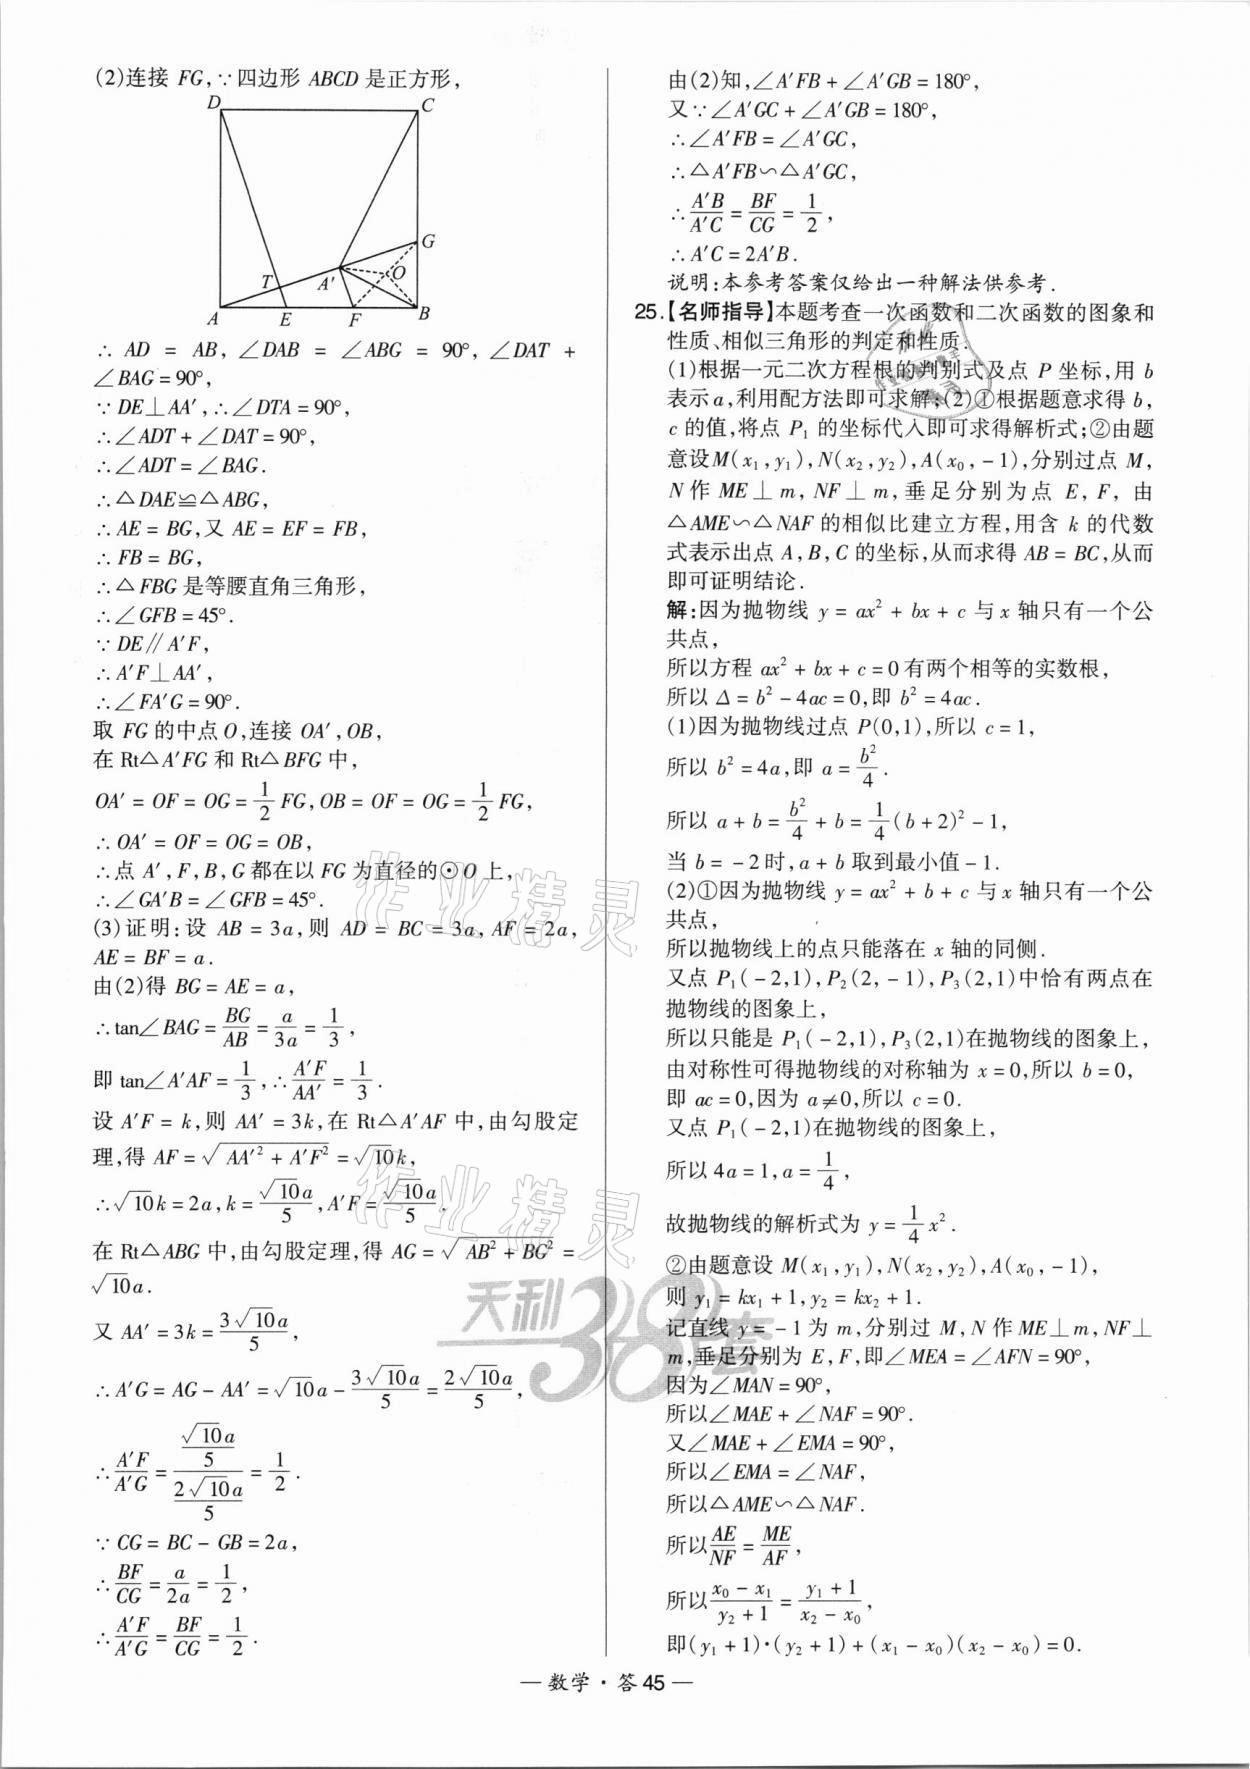 (2)连接 FG,∵四边形 ABCD 是正方形,
D
C
G
T
A′
O
A
E
F
B
∴ AD = AB, ∠DAB = ∠ABG = 90°, ∠DAT +
∠BAG = 90°,
∵DE⊥AA′,∴∠DTA = 90°,
∴∠ADT + ∠DAT = 90°,
∴∠ADT = ∠BAG.
∴△DAE≌△ABG,
∴AE = BG,又 AE = EF = FB,
∴FB = BG,
∴△FBG 是等腰直角三角形,
∴∠GFB = 45°.
∵DE∥A′F,
∴A′F⊥AA′,
∴∠FA′G = 90°.
取 FG 的中点 O,连接 OA′,OB,
在 Rt△A′FG 和 Rt△BFG 中,
OA′ = OF = OG = 1/2 FG,OB = OF = OG = 1/2 FG,
∴OA′ = OF = OG = OB,
∴点 A′,F,B,G 都在以 FG 为直径的⊙O 上,
∴∠GA′B = ∠GFB = 45°.
(3)证明:设 AB = 3a,则 AD = BC = 3a, AF = 2a,
AE = BF = a.
由(2)得 BG = AE = a,
∴tan∠BAG = BG/AB = a/3a = 1/3,
即 tan∠A′AF = 1/3,∴A′F/AA′ = 1/3.
设 A′F = k,则 AA′ = 3k,在 Rt△A′AF 中,由勾股定
理,得 AF = √(AA′² + A′F²) = √10k,
∴√10k = 2a,k = √10a/5,A′F = √10a/5.
在 Rt△ABG 中,由勾股定理,得 AG = √(AB² + BG²) =
√10a.
又 AA′ = 3k = 3√10a/5,
∴A′G = AG - AA′ = √10a - 3√10a/5 = 2√10a/5,
∴A′F/A′G = (√10a/5)/(2√10a/5) = 1/2.
∵CG = BC - GB = 2a,
∴BF/CG = a/2a = 1/2,
∴A′F/A′G = BF/CG = 1/2.
由(2)知,∠A′FB + ∠A′GB = 180°,
又∵∠A′GC + ∠A′GB = 180°,
∴∠A′FB = ∠A′GC,
∴△A′FB∽△A′GC,
∴A′B/A′C = BF/CG = 1/2,
∴A′C = 2A′B.
说明:本参考答案仅给出一种解法供参考.
25.【名师指导】本题考查一次函数和二次函数的图象和
性质、相似三角形的判定和性质.
(1)根据一元二次方程根的判别式及点 P 坐标,用 b
表示 a,利用配方法即可求解;(2)①根据题意求得 b,
c 的值,将点 P₁ 的坐标代入即可求得解析式;②由题
意设M(x₁,y₁),N(x₂,y₂),A(x₀,-1),分别过点 M,
N 作 ME⊥m, NF⊥m, 垂足分别为点 E, F, 由
△AME∽△NAF 的相似比建立方程,用含 k 的代数
式表示出点 A,B,C 的坐标,从而求得 AB = BC,从而
即可证明结论.
解:因为抛物线 y = ax² + bx + c 与 x 轴只有一个公
共点,
所以方程 ax² + bx + c = 0 有两个相等的实数根,
所以 Δ = b² - 4ac = 0,即 b² = 4ac.
(1)因为抛物线过点 P(0,1),所以 c = 1,
所以 b² = 4a,即 a = b²/4.
所以 a + b = b²/4 + b = 1/4(b+2)² - 1,
当 b = -2 时,a + b 取到最小值 -1.
(2)①因为抛物线 y = ax² + b + c 与 x 轴只有一个公
共点,
所以抛物线上的点只能落在 x 轴的同侧.
又点 P₁(-2,1),P₂(2,-1),P₃(2,1)中恰有两点在
抛物线的图象上,
所以只能是 P₁(-2,1),P₃(2,1)在抛物线的图象上,
由对称性可得抛物线的对称轴为 x = 0,所以 b = 0,
即 ac = 0,因为 a≠0,所以 c = 0.
又点 P₁(-2,1)在抛物线的图象上,
所以 4a = 1,a = 1/4,
故抛物线的解析式为 y = 1/4 x².
②由题意设 M(x₁,y₁),N(x₂,y₂),A(x₀,-1),
则 y₁ = kx₁ + 1,y₂ = kx₂ + 1.
记直线 y = -1 为 m,分别过 M,N 作 ME⊥m,NF⊥
m,垂足分别为 E,F,即∠MEA = ∠AFN = 90°,
因为∠MAN = 90°,
所以∠MAE + ∠NAF = 90°.
又∠MAE + ∠EMA = 90°,
所以∠EMA = ∠NAF,
所以△AME∽△NAF.
所以AE/NF = ME/AF,
所以(x₀ - x₁)/(y₂ + 1) = (y₁ + 1)/(x₂ - x₀),
即(y₁ + 1)·(y₂ + 1) + (x₁ - x₀)(x₂ - x₀) = 0.
作业精灵
作业精灵
天利38套
— 数学·答 45 —